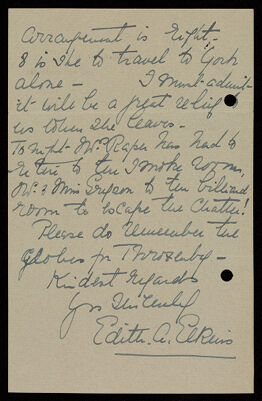 arrangement is right -
& is she to travel to York
alone - I must admit
it will be a great relief
us when she leaves -
Tonight Mr. Raper has had to
retire to the Smoke Room,
Mr. & Miss to the billiard
room to escape the Chatter!
Please do remember the
globes for -
Kindest regards
Yrs sincerely
Edith. A. Elkins